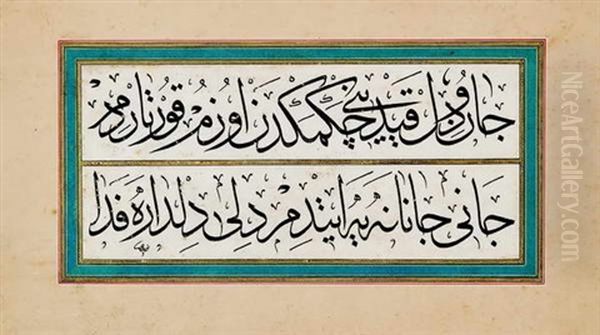 جان و دل قیدینی چكمكدن اوزم قورتاردم
جانی جانانه یه ایتدم دلی دلداره فدا
NiceArtGallery.com